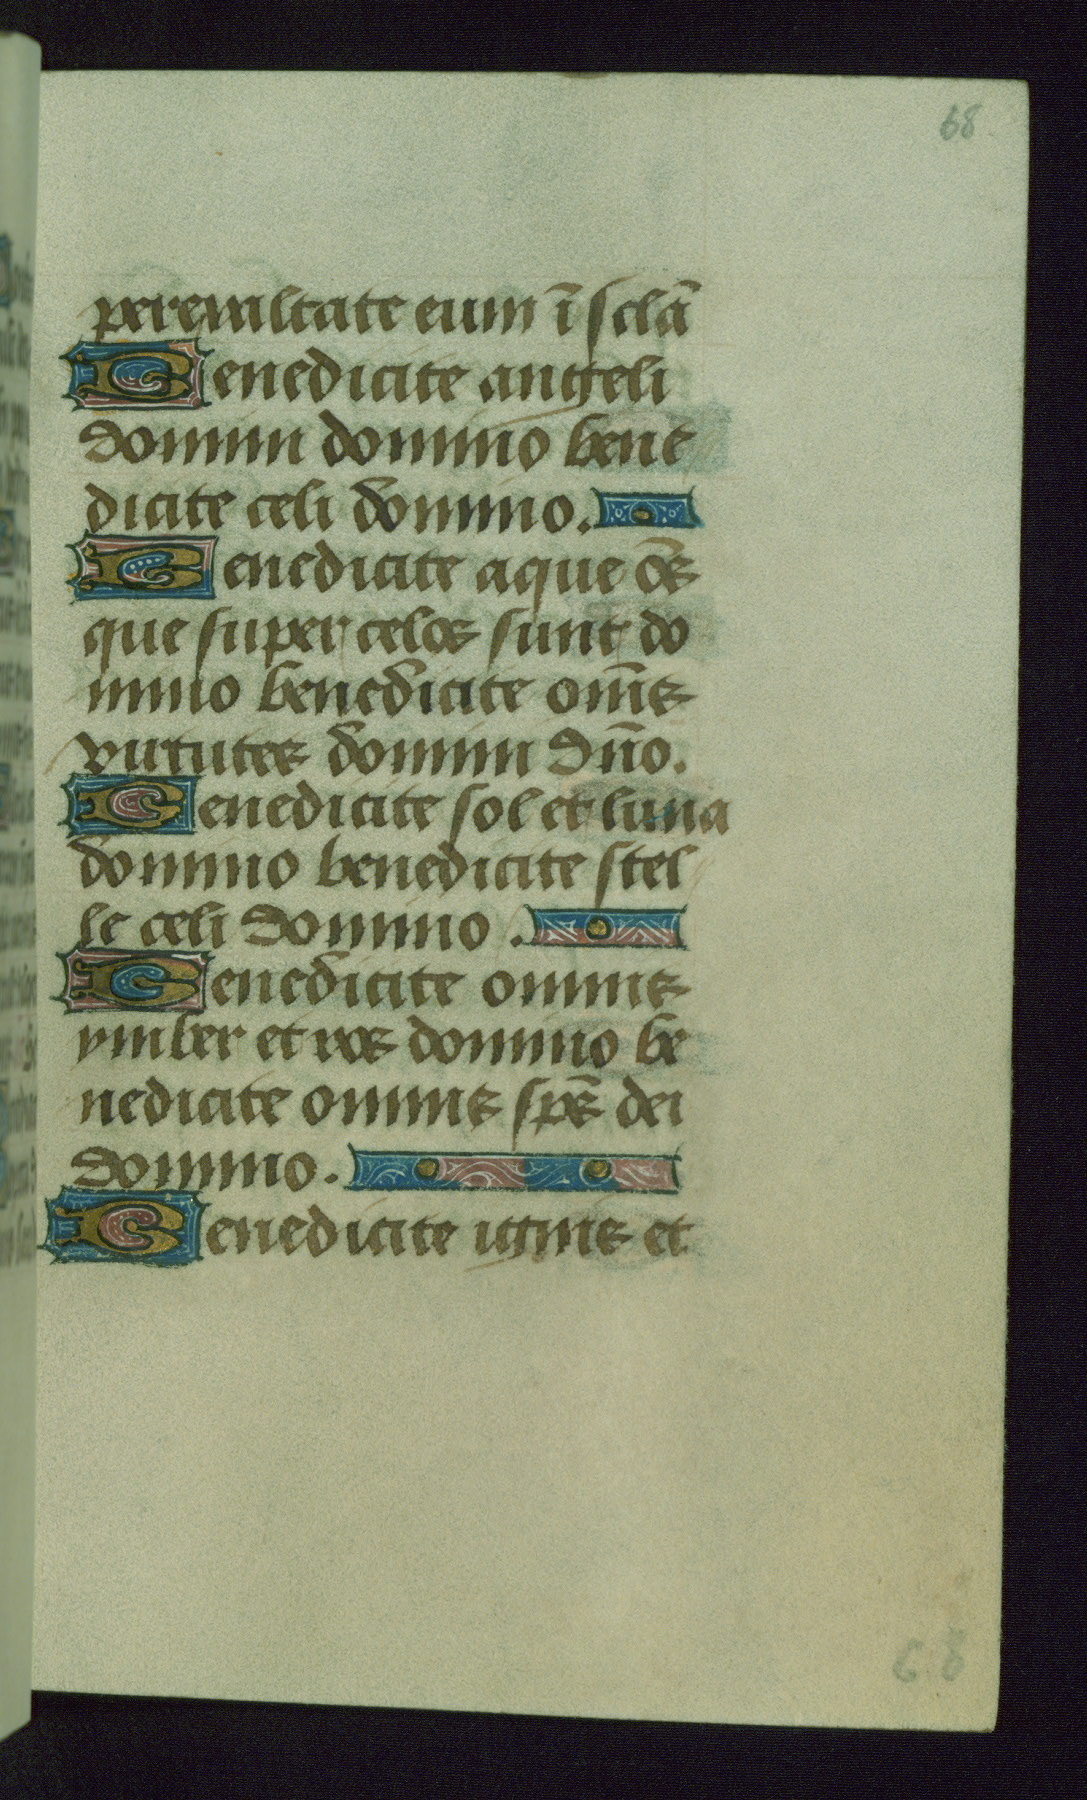 68
perexultate eum ī sclā
Benedicite angeli
domini domino bene
dicite celi domino.
Benedicite aque oēs
que super celos sunt do
mino benedicite om̄es
virtutes domini dn̄o.
Benedicite sol et luna
domino benedicite stel
le celi domino.
Benedicite omnis
ymber et ros domino be
nedicite omnes sp̄s dei
domino.
Benedicite ignis et
68